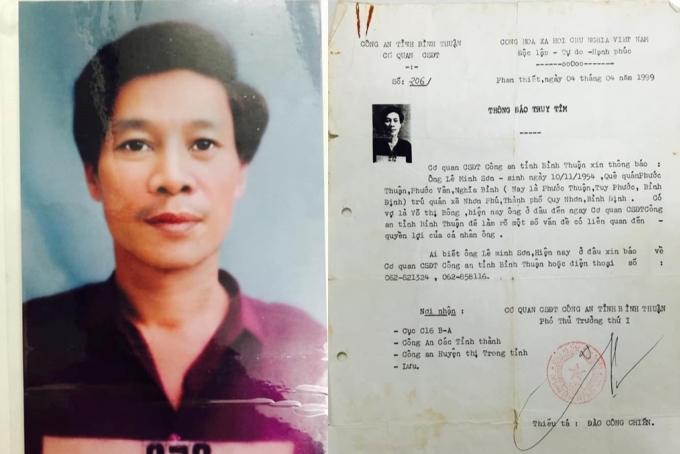 CÔNG AN TỈNH BÌNH THUẬN
CƠ QUAN CSĐT
-:-
Số: 206/
CỘNG HÒA XÃ HỘI CHỦ NGHĨA VIỆT NAM
Độc lập - Tự do - Hạnh phúc
------ooOoo------
Phan thiết, ngày 04 tháng 04 năm 1999
THÔNG BÁO TRUY TÌM
-----
Cơ quan CSĐT Công an tỉnh Bình Thuận xin thông báo :
Ông Lê Minh Sơn - sinh ngày 10/11/1954 ,Quê quánPhước
Thuận,Phước Vân,Nghĩa Bình ( Nay là Phước Thuận,Tuy Phước, Bình
Định) trú quán xã Nhơn Phú,Thành phố Quy Nhơn,Bình Định . Có
vợ là Võ thị Bông ,hiện nay ông ở đâu đến ngay Cơ quan CSĐTCông
an tỉnh Bình Thuận để làm rõ một số vấn đề có liên quan đến -
quyền lợi của cá nhân ông .
Ai biết ông Lê minh Sơn,Hiện nay ở đâu xin báo về
Cơ quan CSĐT Công an tỉnh Bình Thuận hoặc điện thoại số :
062-821324 , 062-858116.
Nơi nhận :
- Cục C16 B-A
- Công An Các Tỉnh thành
- Công an Huyện thị Trong tỉnh
- Lưu.
CƠ QUAN CSĐT CÔNG AN TỈNH BÌNH THUẬN
Phó Thủ Trưởng thứ I
Thiếu tá : ĐÀO CÔNG CHIẾN.